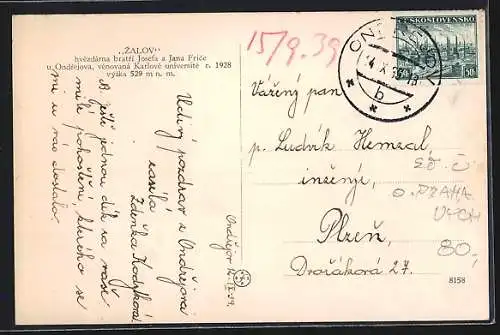 „ŽALOV"
hvězdárna bratří Josefa a Jana Friče
u Ondřejova, věnovaná Karlově universitě r. 1928
výška 529 m n. m.
15/9.39
ONDŘEJOV
b
ČESKOSLOVENSKO
50
Vážený pan
p. Ludvík
inženýr
Plzeň,
Dvořákova 27.
PRAHA
80,-
8158
Uctivý pozdrav z Ondřejova
zasílá
Zdeňka
A ještě jednou dík za vaše
milé pohoštění kterého se
mi u vás dostalo.
Ondřejov